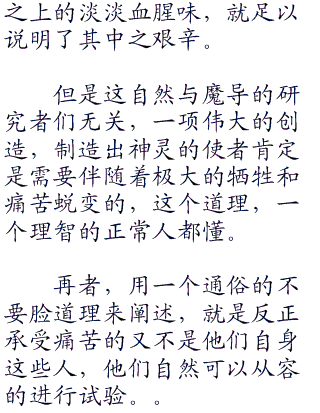 之上的淡淡血腥味，就足以
说明了其中之艰辛。
但是这自然与魔导的研
究者们无关，一项伟大的创
造，制造出神灵的使者肯定
是需要伴随着极大的牺牲和
痛苦蜕变的，这个道理，一
个理智的正常人都懂。
再者，用一个通俗的不
要脸道理来阐述，就是反正
承受痛苦的又不是他们自身
这些人，他们自然可以从容
的进行试验。。